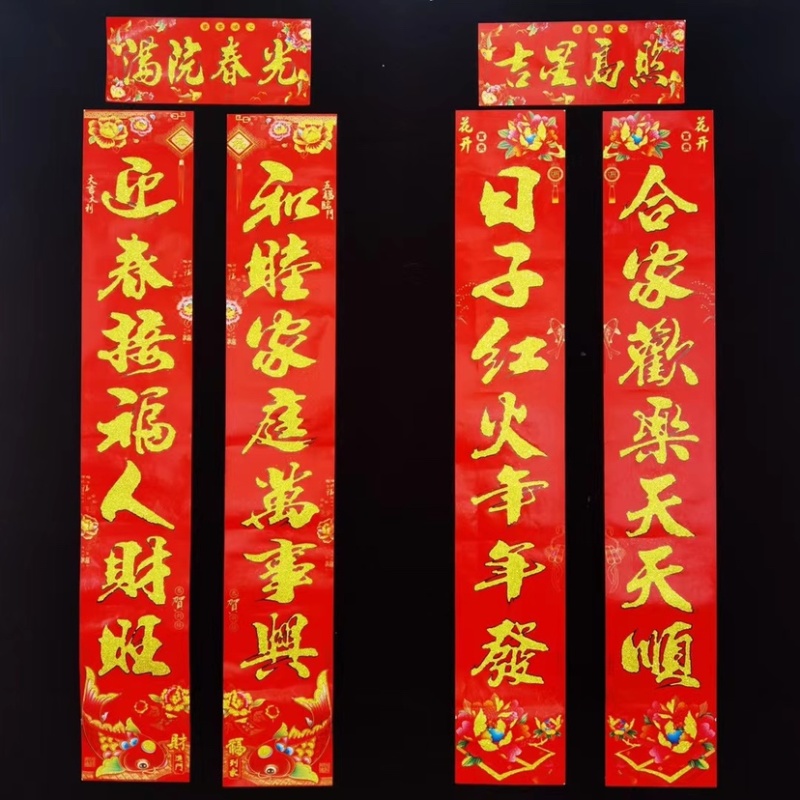 满院春光
迎春接福人财旺
和睦家庭萬事興
大吉大利
五福臨門
財
福
到家
吉星高照
日子红火年年發
合家歡乐天天顺
花开
花开